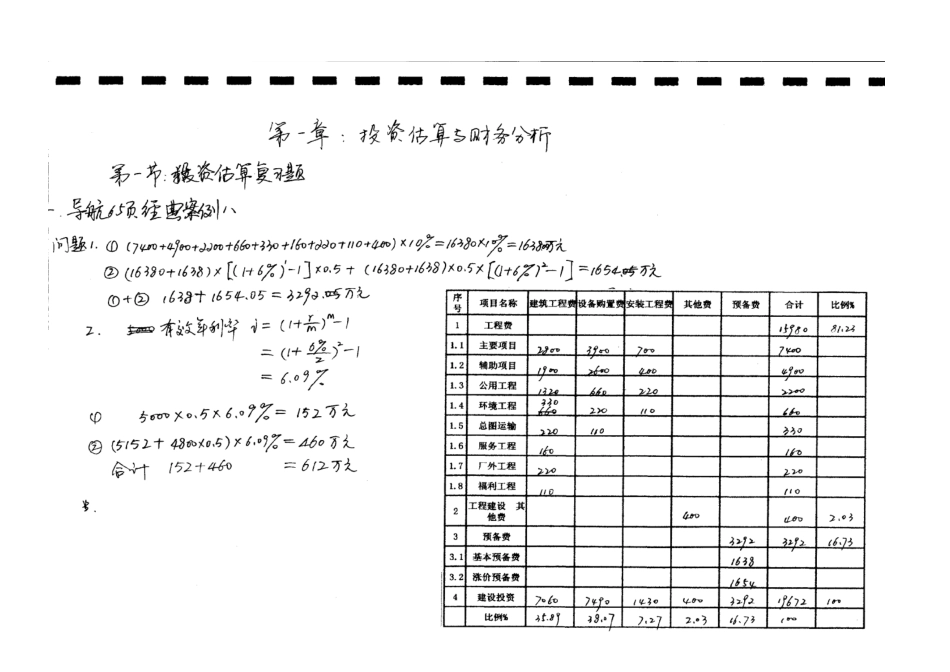 第一章：投资估算与财务分析
第一节：投资估算复习题
一.导航65页经典案例八
问题1. ① (7400+4900+2200+660+330+160+220+110+400)×10%=16380×10%=1638万元
② (16380+1638)×[(1+6%)¹-1]×0.5+(16380+1638)×0.5×[(1+6%)²-1]=1654.05万元
①+② 1638+1654.05=3292.05万元
2. 有效年利率 i=(1+r/m)^m-1
=(1+6%/2)²-1
=6.09%
① 5000×0.5×6.09%=152万元
② (5152+4800×0.5)×6.09%=460万元
合计 152+460 =612万元
序号 项目名称 建筑工程费 设备购置费 安装工程费 其他费 预备费 合计 比例%
1 工程费 15980 81.23
1.1 主要项目 2800 3900 700 7400
1.2 辅助项目 1900 2600 400 4900
1.3 公用工程 1320 660 220 2200
1.4 环境工程 330 220 110 660
1.5 总图运输 220 110 330
1.6 服务工程 160 160
1.7 厂外工程 220 220
1.8 福利工程 110 110
2 工程建设其他费 400 400 2.03
3 预备费 3292 3292 16.73
3.1 基本预备费 1638
3.2 涨价预备费 1654
4 建设投资 7060 7490 1430 400 3292 19672 100
比例% 35.89 38.07 7.27 2.03 16.73 100